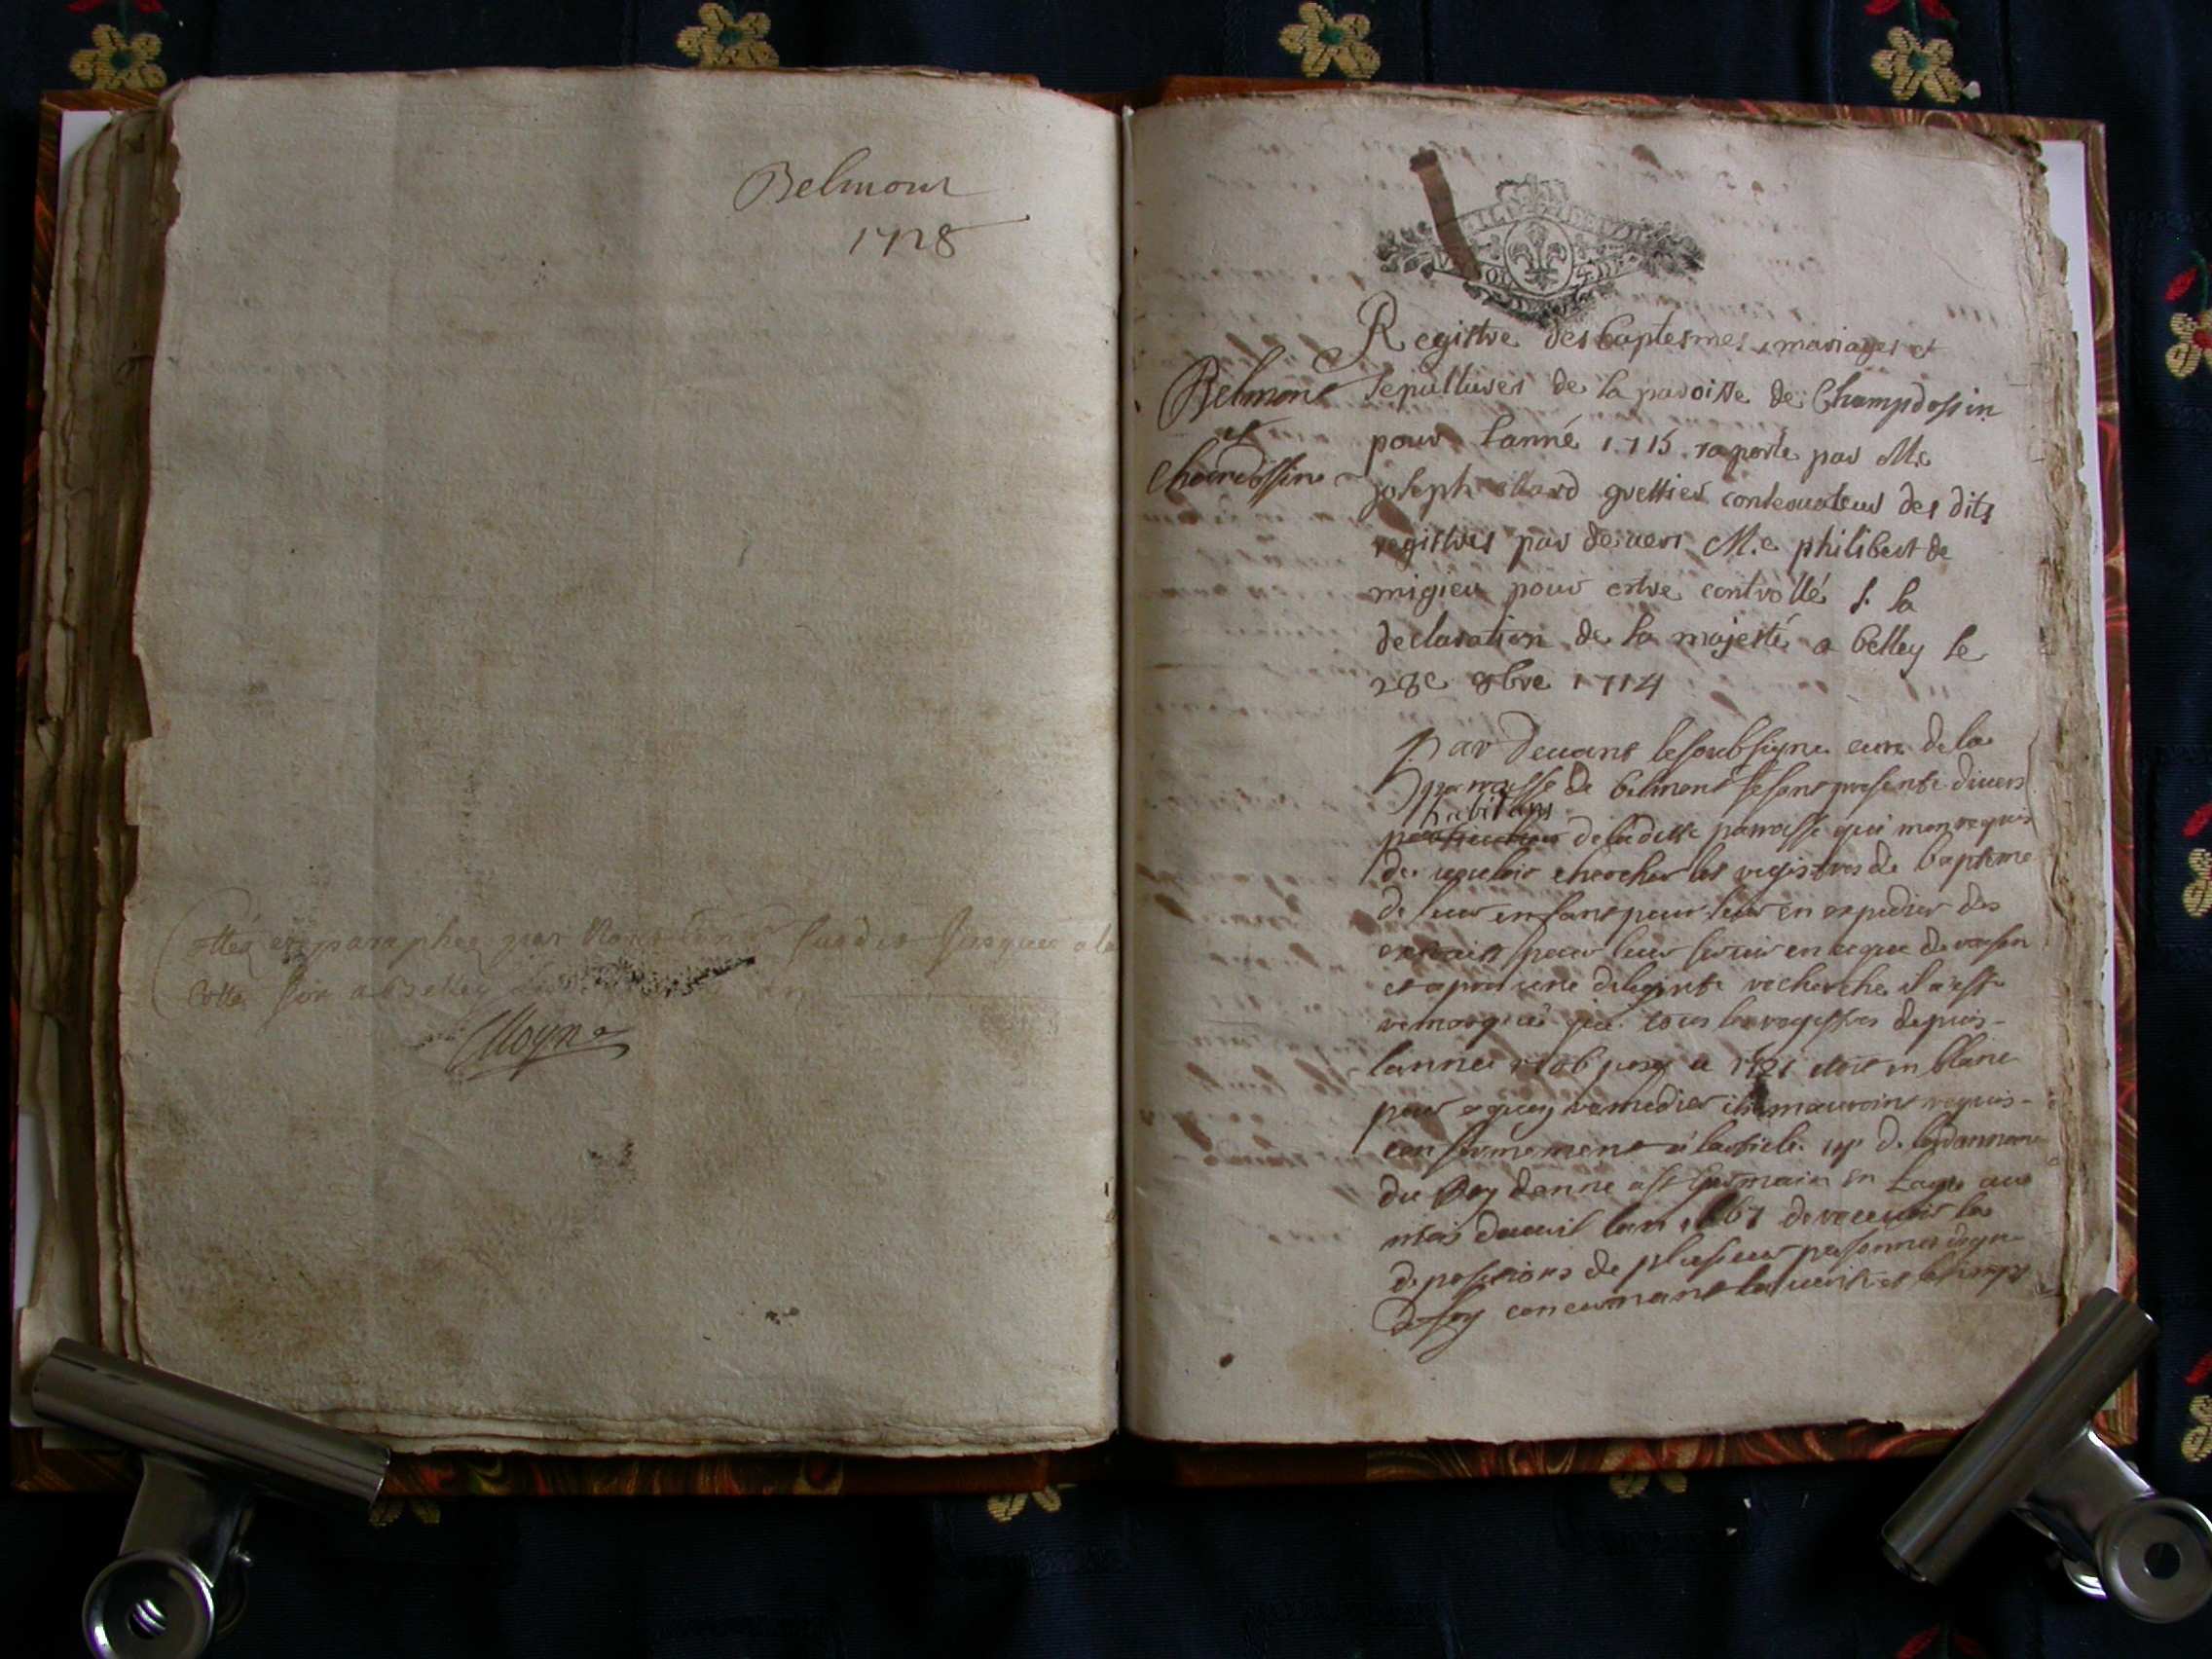 Belmont
1728
Cottéz et paraphéz par Nous jusques a la
Cotte six a Belley
Moyne
Registre des baptesmes, mariages et
sepultures de la paroisse de Champdossin
pour lanné 1715 raporte par Me
joseph greffier conservateur des dits
registres par devers Me philibert de
migieu pour estre controllé s. la
declaration de sa majesté a belley le
28e 8bre 1714
Belmont
et
Chandossin
Par devant le soubsigne cure de la
parroisse de belmont se sont presente divers
habitans de la ditte parroisse qui mon requis
de vouloir chercher les registres de bapteme
de leur enfans pour leur en expedier des
extraits pour leur servir en ce que de raison
et apres une diligente recherche il a esté
remarqué que tous les registres depuis
lannee 1706 jusq a 1721 etois en blanc
pour a quoy remedier ils mauroint requis
conformement a larticle de lordonnance
du Roy donne a St Germain en Laye au
mois davril lan 1667 de recevoir les
depositions de plusieur personnes digne
de foy concernant la verité et le temps